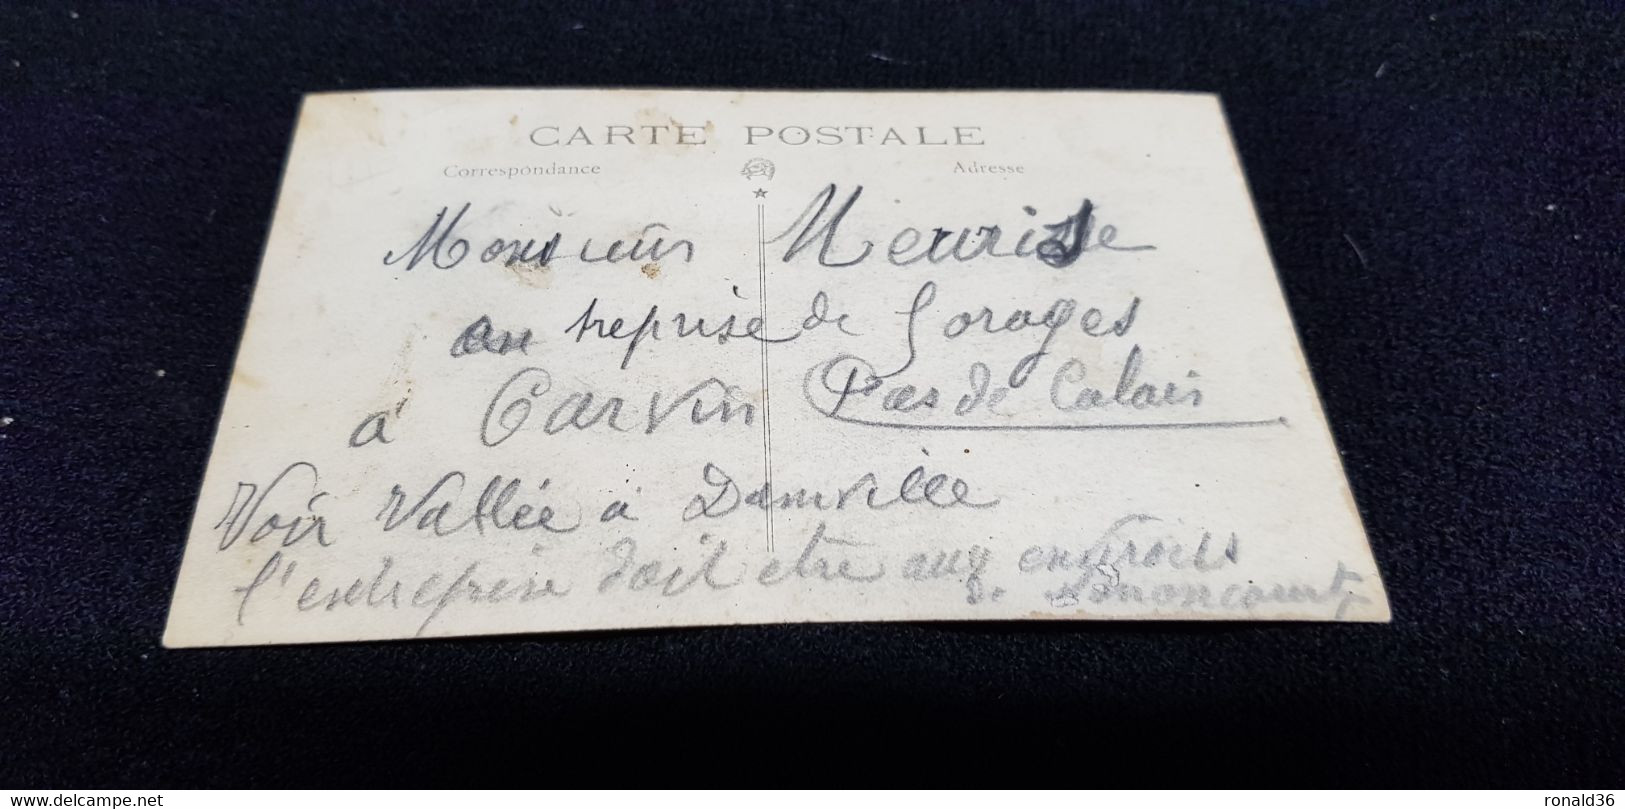 CARTE POSTALE
Correspondance Adresse
Monsieur Meurisse
antreprise de forages
à Carvin Pas de Calais
Voir Vallée à Damville
l'entreprise doit être aux environs
de Nonancourt
delcampe.net
ronald36